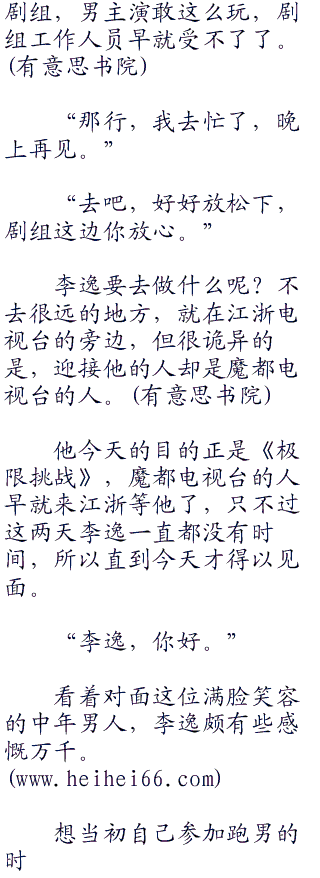 剧组，男主演敢这么玩，剧
组工作人员早就受不了了。
(有意思书院)
“那行，我去忙了，晚
上再见。”
“去吧，好好放松下，
剧组这边你放心。”
李逸要去做什么呢？不
去很远的地方，就在江浙电
视台的旁边，但很诡异的
是，迎接他的人却是魔都电
视台的人。(有意思书院)
他今天的目的正是《极
限挑战》，魔都电视台的人
早就来江浙等他了，只不过
这两天李逸一直都没有时
间，所以直到今天才得以见
面。
“李逸，你好。”
看着对面这位满脸笑容
的中年男人，李逸颇有些感
慨万千。
(www.heihei66.com)
想当初自己参加跑男的
时